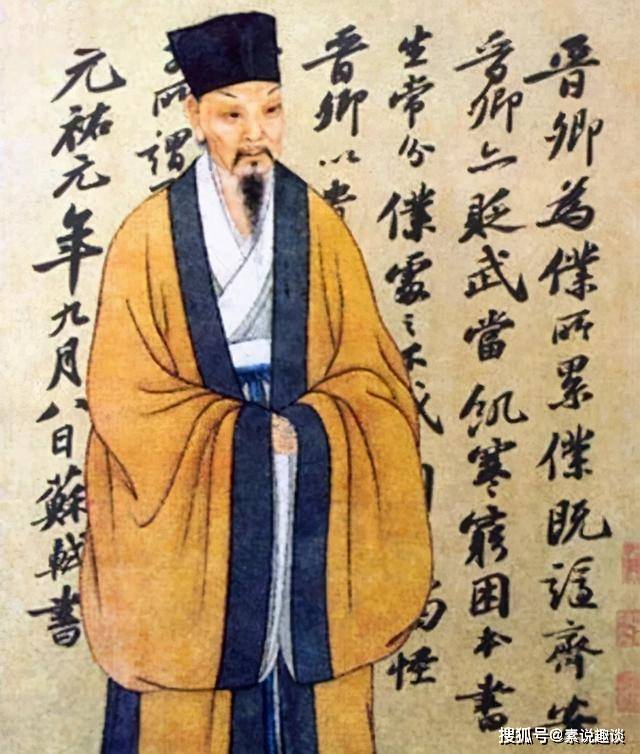 晉卿為僕所累僕既謫齊安
晉卿亦貶武當飢寒窮困本書
生常分僕處之不戚怪
晉卿以貴
所謂
元祐元年九月八日蘇軾書
搜狐号@素说趣谈